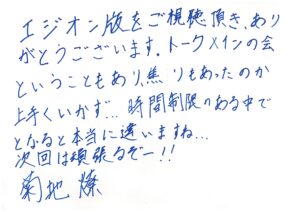 エジオン版をご視聴頂き、あり
がとうございます。トークメインの会
ということもあり、焦りもあったのか
上手くいかず…時間制限のある中で
となると本当に違いますね…
次回は頑張るぞー!!
菊地 燎